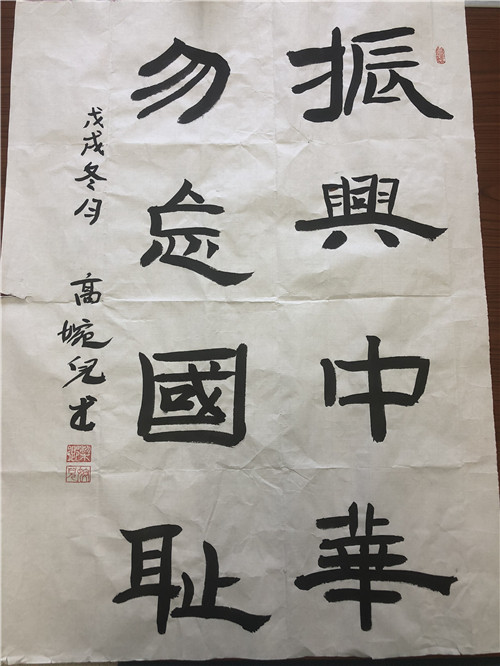 振興中華
勿忘國耻
戊戌冬月
高婉兒书